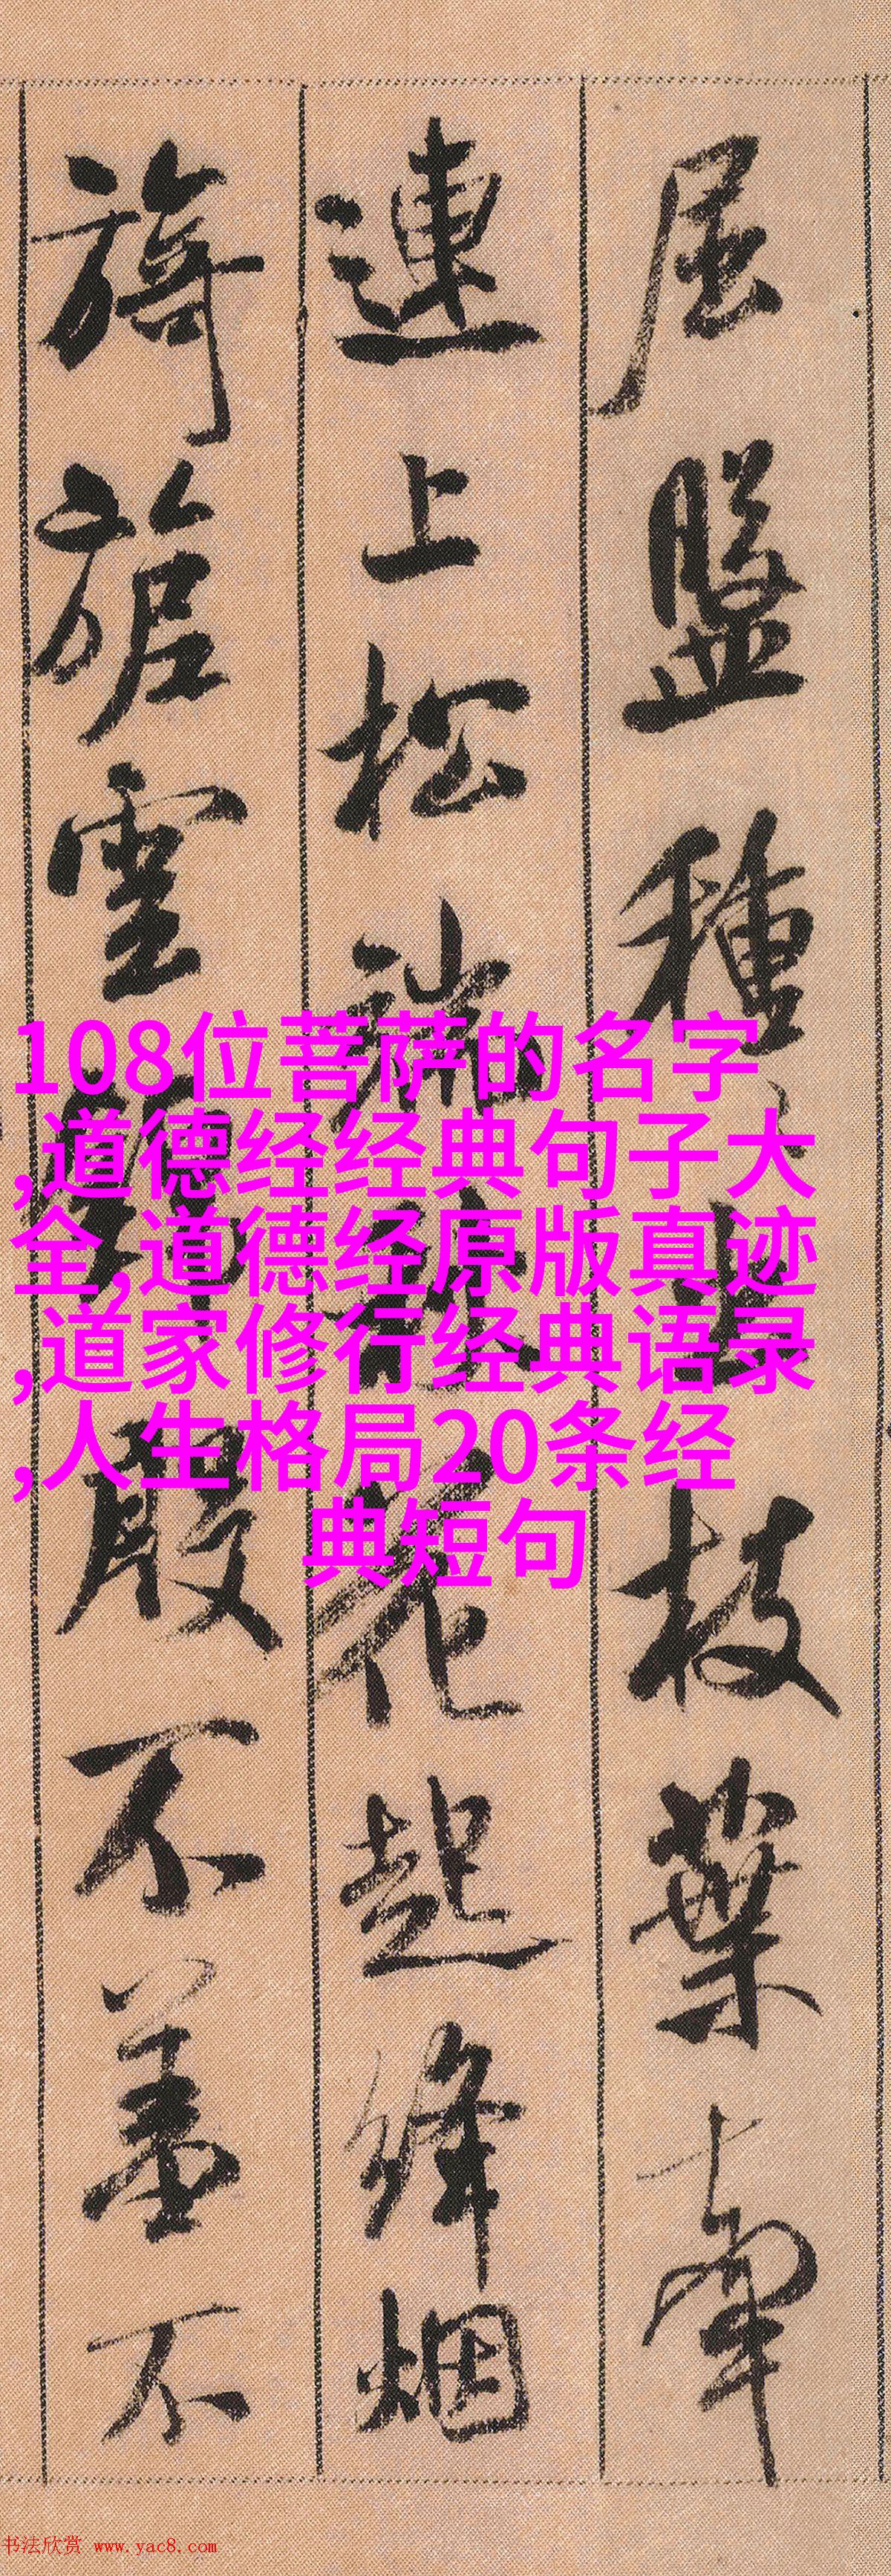 屈盤種〻出枝葉牽
連上松端秋花起絳烟
旖旎雲錦殷不羞不
108位菩萨的名字
,道德经经典句子大
全,道德经原版真迹
,道家修行经典语录
,人生格局20条经
典短句
书法欣赏 www.yac8.com